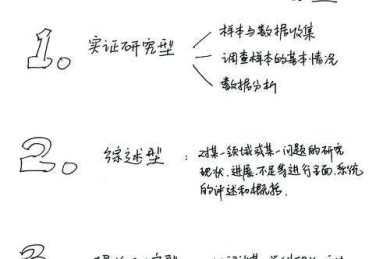 1. 实证研究型
样本与数据收集
调查样本的基本情况
数据分析
2. 综述型：对某一领域或某一问题的研究
现状、进展、不足等进行全面、系统
的评述和概括.